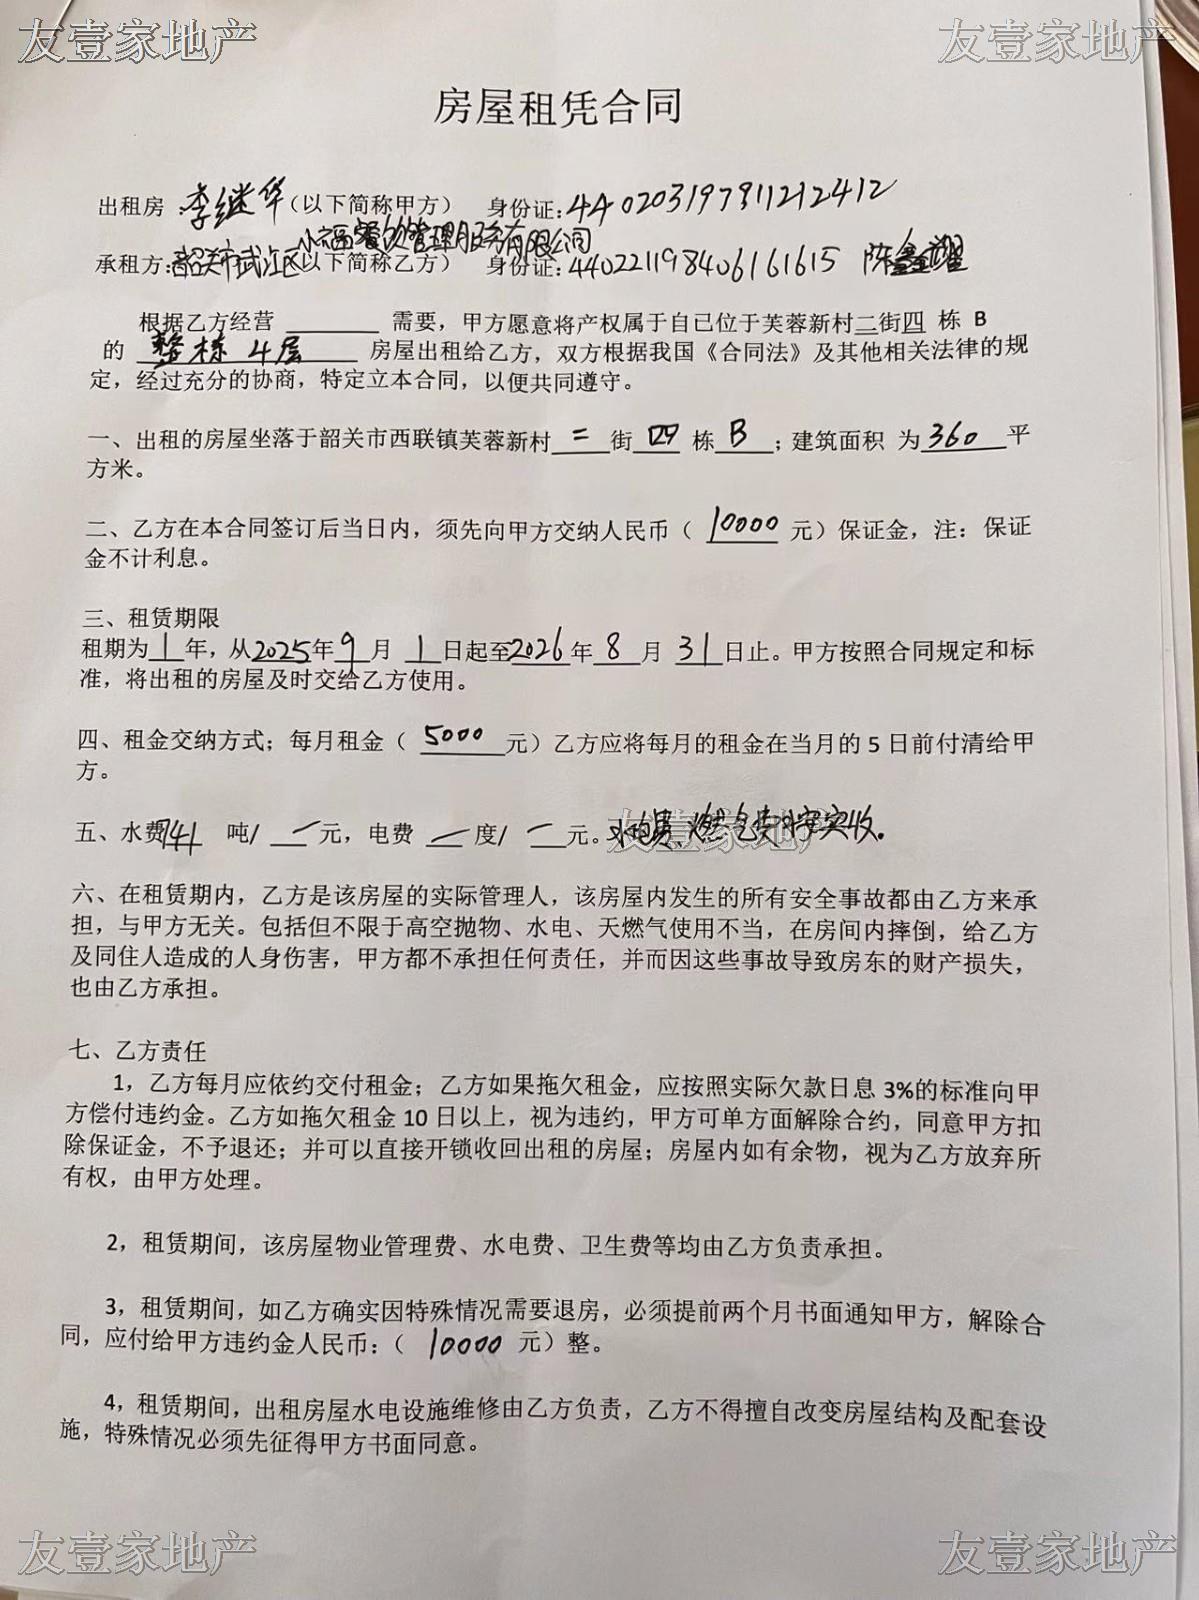 友壹家地产 友壹家地产
房屋租凭合同
出租房：李继华（以下简称甲方） 身份证：440203197811212412
小福餐饮管理服务有限公司
承租方：韶关市武江区（以下简称乙方） 身份证：440221198406161615 陈鑫耀
根据乙方经营 需要，甲方愿意将产权属于自己位于芙蓉新村二街四 栋 B
的 整栋4层 房屋出租给乙方，双方根据我国《合同法》及其他相关法律的规
定，经过充分的协商，特定立本合同，以便共同遵守。
一、出租的房屋坐落于韶关市西联镇芙蓉新村二街四栋B；建筑面积 为360平
方米。
二、乙方在本合同签订后当日内，须先向甲方交纳人民币（ 10000 元）保证金，注：保证
金不计利息。
三、租赁期限
租期为1年，从2025年9月 1日起至2026年8月31日止。甲方按照合同规定和标
准，将出租的房屋及时交给乙方使用。
四、租金交纳方式；每月租金（ 5000 元）乙方应将每月的租金在当月的5日前付清给甲
方。
五、水费 吨/ 元，电费 度/ 元。 燃气费 实收。
友壹家地产
六、在租赁期内，乙方是该房屋的实际管理人，该房屋内发生的所有安全事故都由乙方来承
担，与甲方无关。包括但不限于高空抛物、水电、天燃气使用不当，在房间内摔倒，给乙方
及同住人造成的人身伤害，甲方都不承担任何责任，并而因这些事故导致房东的财产损失，
也由乙方承担。
七、乙方责任
1，乙方每月应依约交付租金；乙方如果拖欠租金，应按照实际欠款日息3%的标准向甲
方偿付违约金。乙方如拖欠租金10日以上，视为违约，甲方可单方面解除合约，同意甲方扣
除保证金，不予退还；并可以直接开锁收回出租的房屋；房屋内如有余物，视为乙方放弃所
有权，由甲方处理。
2，租赁期间，该房屋物业管理费、水电费、卫生费等均由乙方负责承担。
3，租赁期间，如乙方确实因特殊情况需要退房，必须提前两个月书面通知甲方，解除合
同，应付给甲方违约金人民币：（ 10000 元）整。
4，租赁期间，出租房屋水电设施维修由乙方负责，乙方不得擅自改变房屋结构及配套设
施，特殊情况必须先征得甲方书面同意。
友壹家地产 友壹家地产